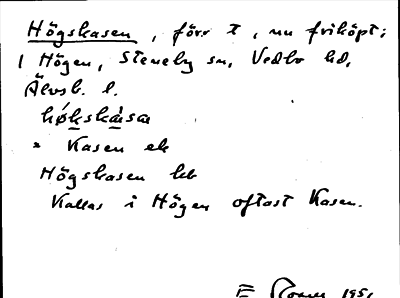 Högskasen, förr t, nu friköpt;
1 Högen, Steneby sn, Vedbo hd,
Älvsb. l.
hø̀kskàsa
" Kasen ek
Högskasen hb
Kallas i Högen oftast Kasen.
E 1951